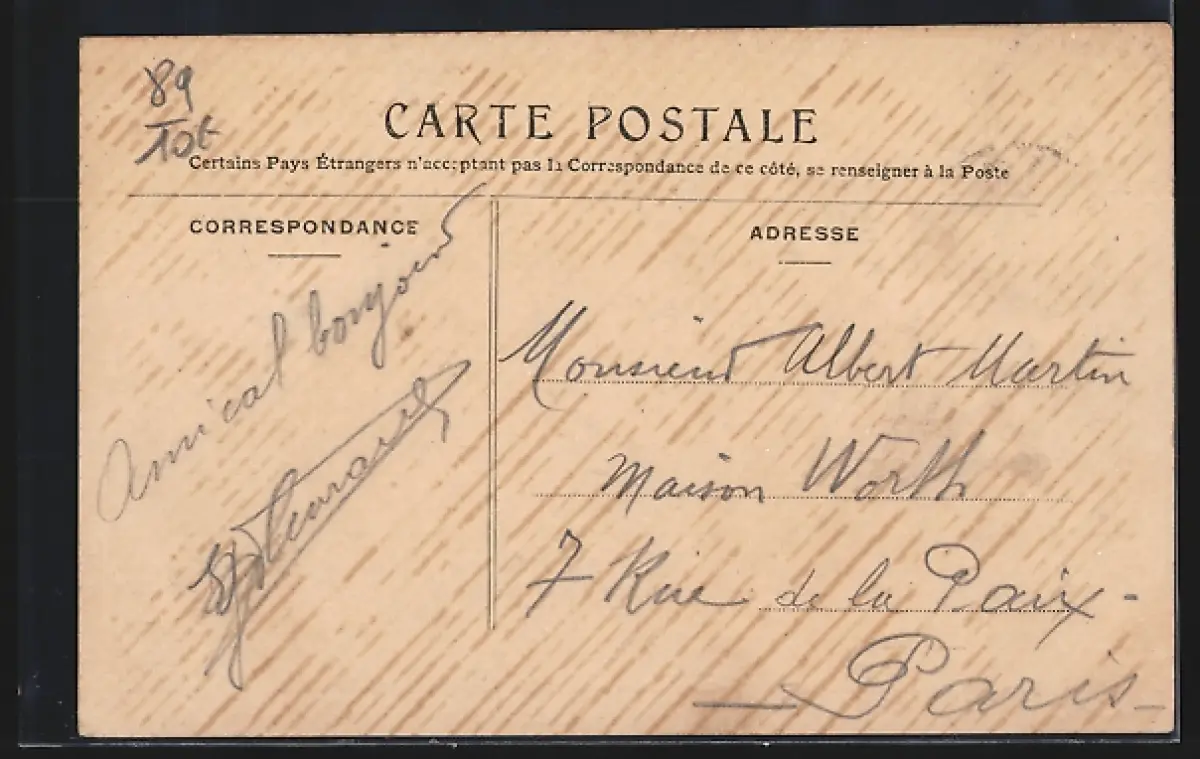 89
10t
CARTE POSTALE
Certains Pays Étrangers n'acceptant pas la Correspondance de ce côté, se renseigner à la Poste
CORRESPONDANCE
Amical bonjour
ADRESSE
Monsieur Albert Martin
Maison Worth
7 Rue de la Paix-
Paris